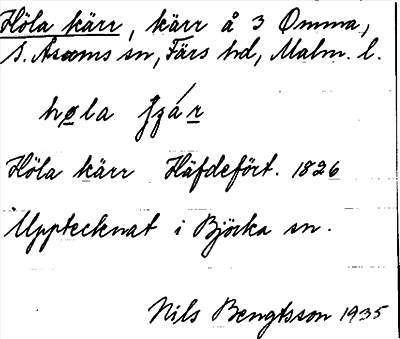 Höla kärr, kärr å 3 Omma,
S. Åsums sn, Färs hd, Malm. l.
høla
Höla kärr Häfdefört. 1826
Upptecknat i Björka sn.
Nils Bengtsson 1935